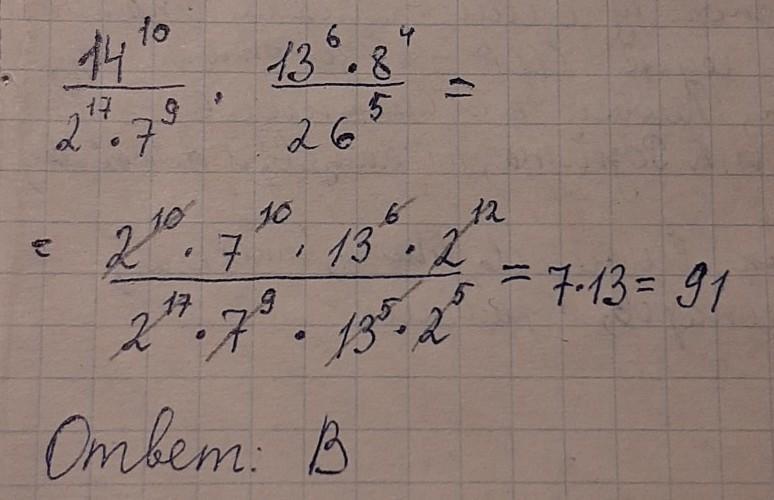 14^10 / (2^17 · 7^9) · (13^6 · 8^4) / 26^5 =
= (2^10 · 7^10 · 13^6 · 2^12) / (2^17 · 7^9 · 13^5 · 2^5) = 7·13 = 91
Ответ: В